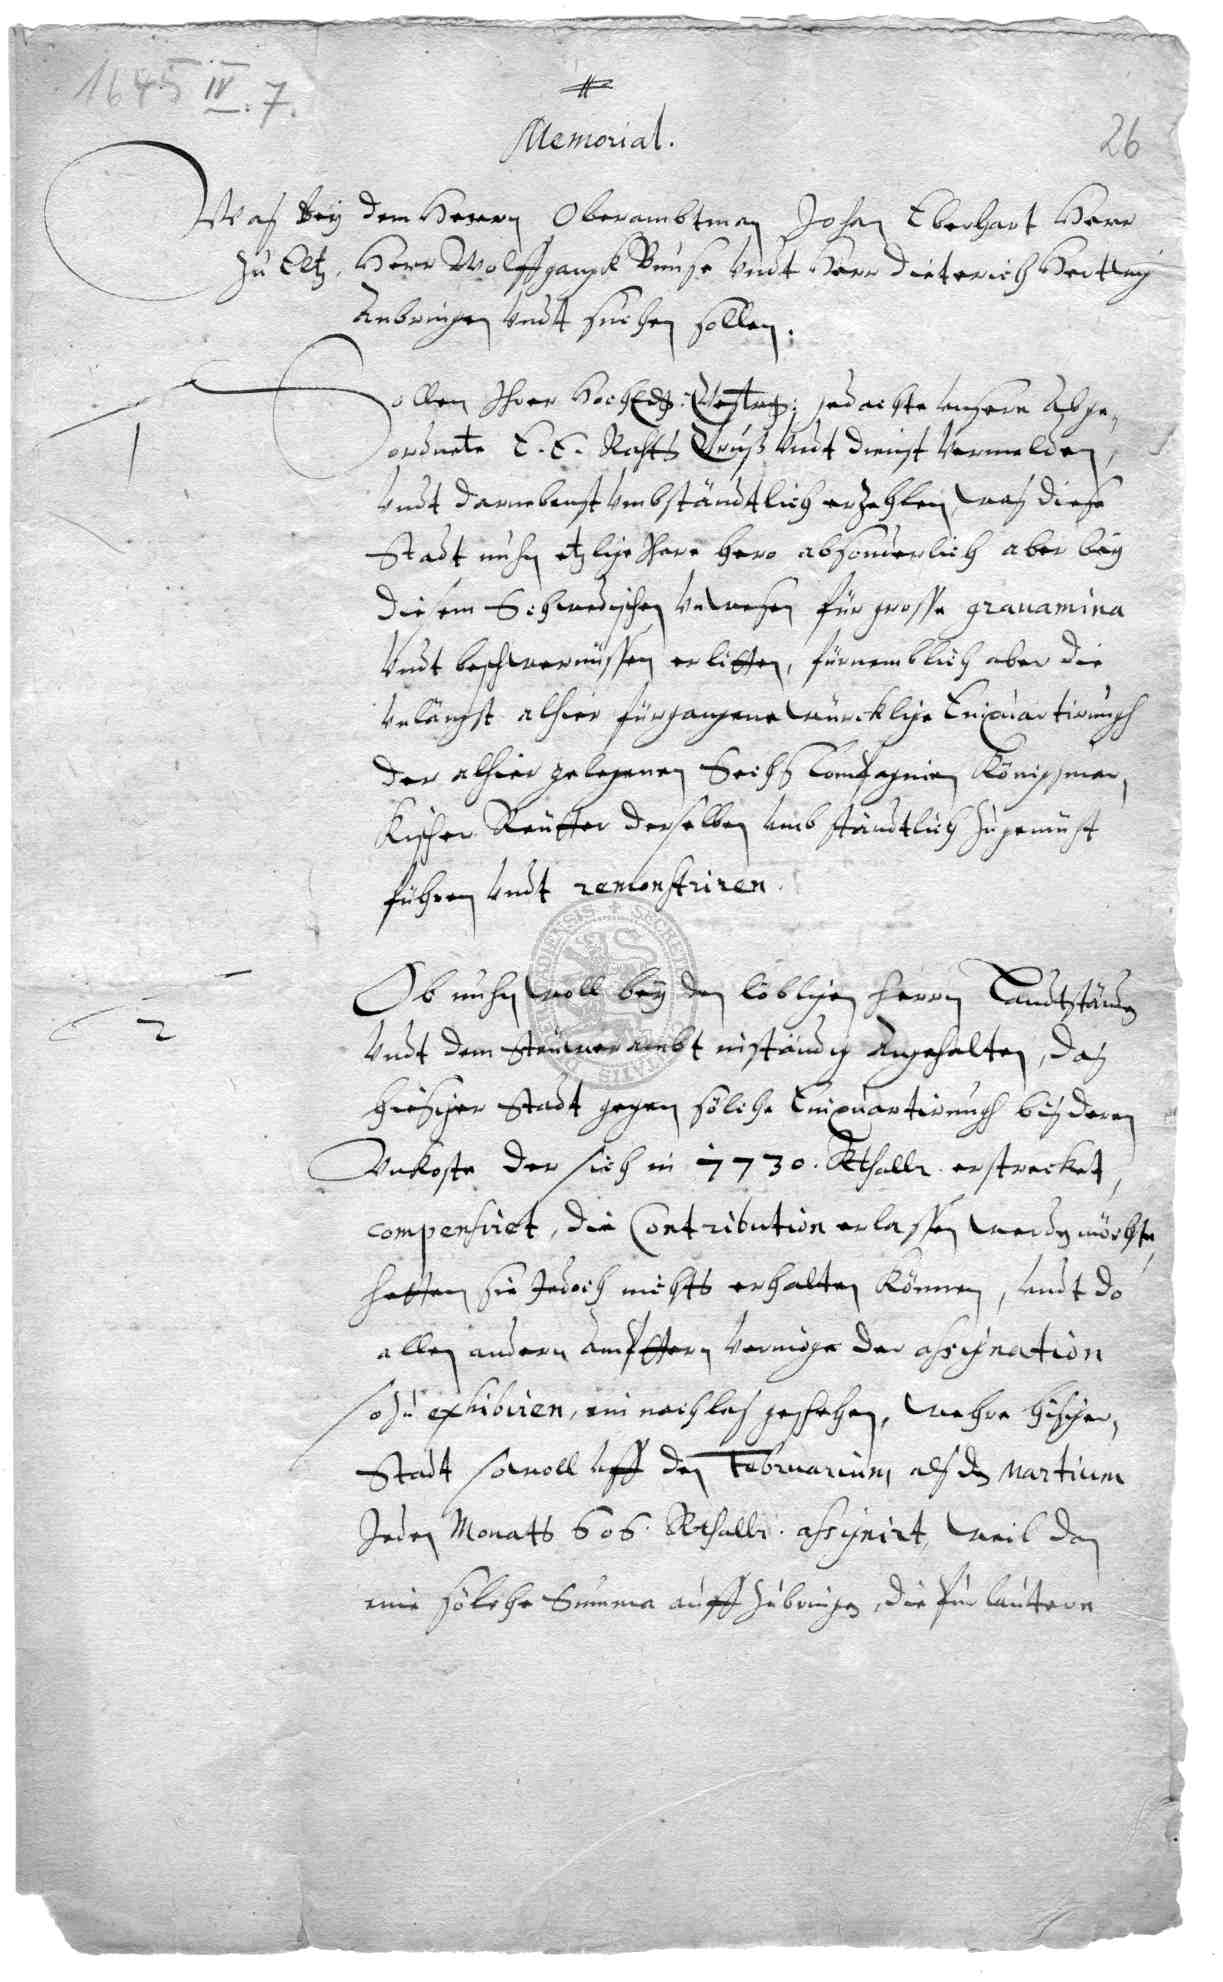 1645 IV. 7.
26
Memorial.
Was bey dem Herrn Oberambtman Johan Eberhart Herr
zu Eltz, Herr Wolffgangk Bunse Undt Herr Dieterich
Anbringen Undt suchen sollen.
1
Sollen Ihrer HochEdg: gedachte Unsere Abge-
ordnete E. E. Rahts Gruß Undt dienst Vermelden,
Undt darnebenst Umbständtlich erzehlen, was diese
Stadt nuhn etlige Jhare hero absonderlich aber bey
diesem Schwedischen Unwesen für grosse grauamina
Undt beschwernüssen erlitten, fürnemblich aber die
Unlängst alhier fürgangene würcklige Einquartirungh
der alhier gelegenen Sechs Compagnien Königsmar-
kischer Reütter derselben umbständtlich zugemüht
führen Undt remonstriren.
2
Ob nuhn woll bey den löbligen Herrn Landtständen
Undt dem Steüwer ambt instendig Angehalten, das
hiesiger Stadt gegen solche Einquartirungh bis deren
Unkoste der sich in 7730. Rthallr. erstrecket,
compensiret, die Contribution erlassen werden möchte,
hetten sie Jedoch nichts erhalten können, undt do
allen andern ämpttern Vermöge der assignation
so zu exhibiren, ein nachlas geschehen, wehre hisiger
Stadt sowoll uff den Februarium, als den Martium
Jeden Monats 606. Rthallr. assignirt, weil dan
eine solche Summa auff zubringen, die für lautere